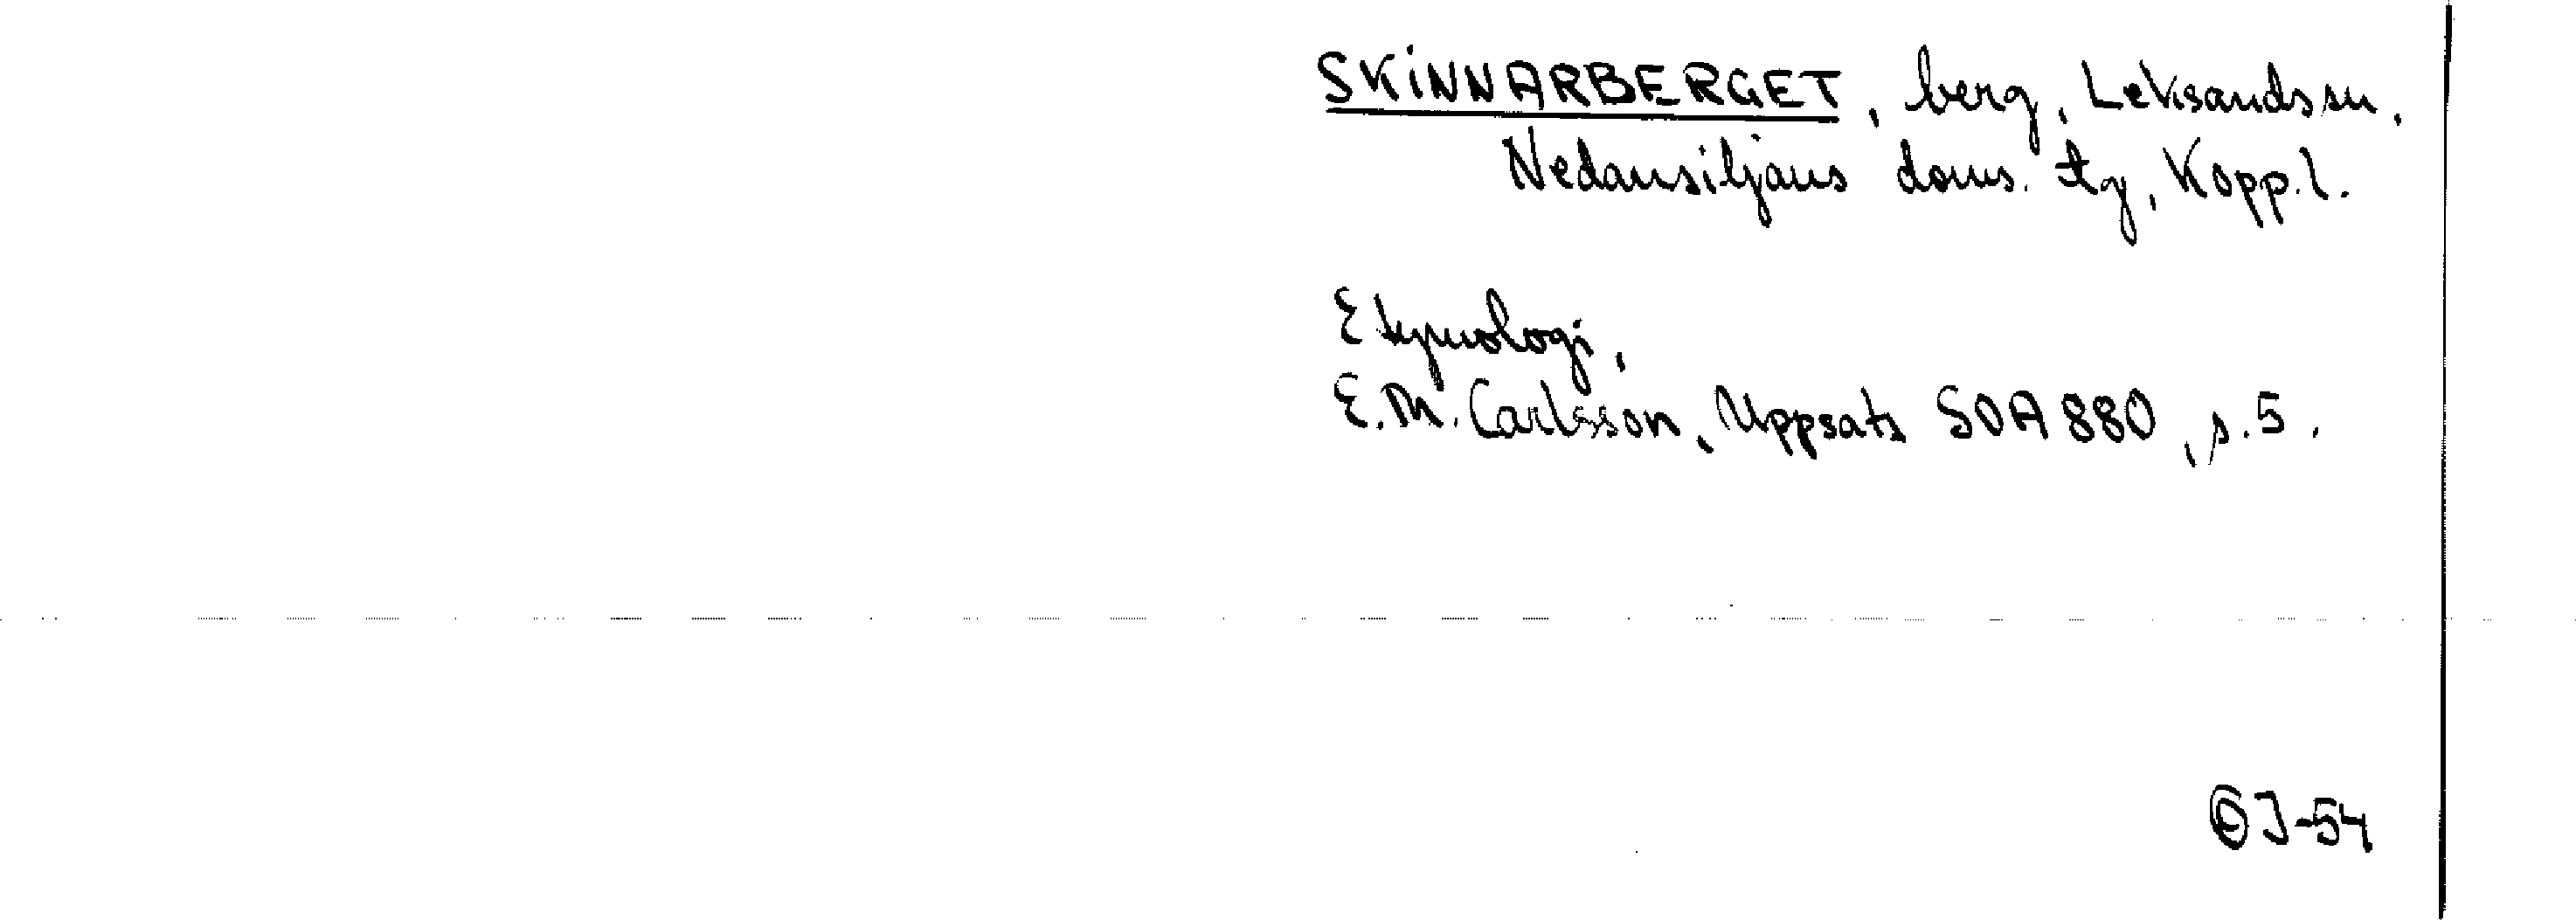 SKINNARBERGET, berg, Leksands sn,
Nedansiljans doms. tg, Kopp. l.
Etymologi,
E.M. Carlsson, Uppsats SOA 880, s. 5.
J-54